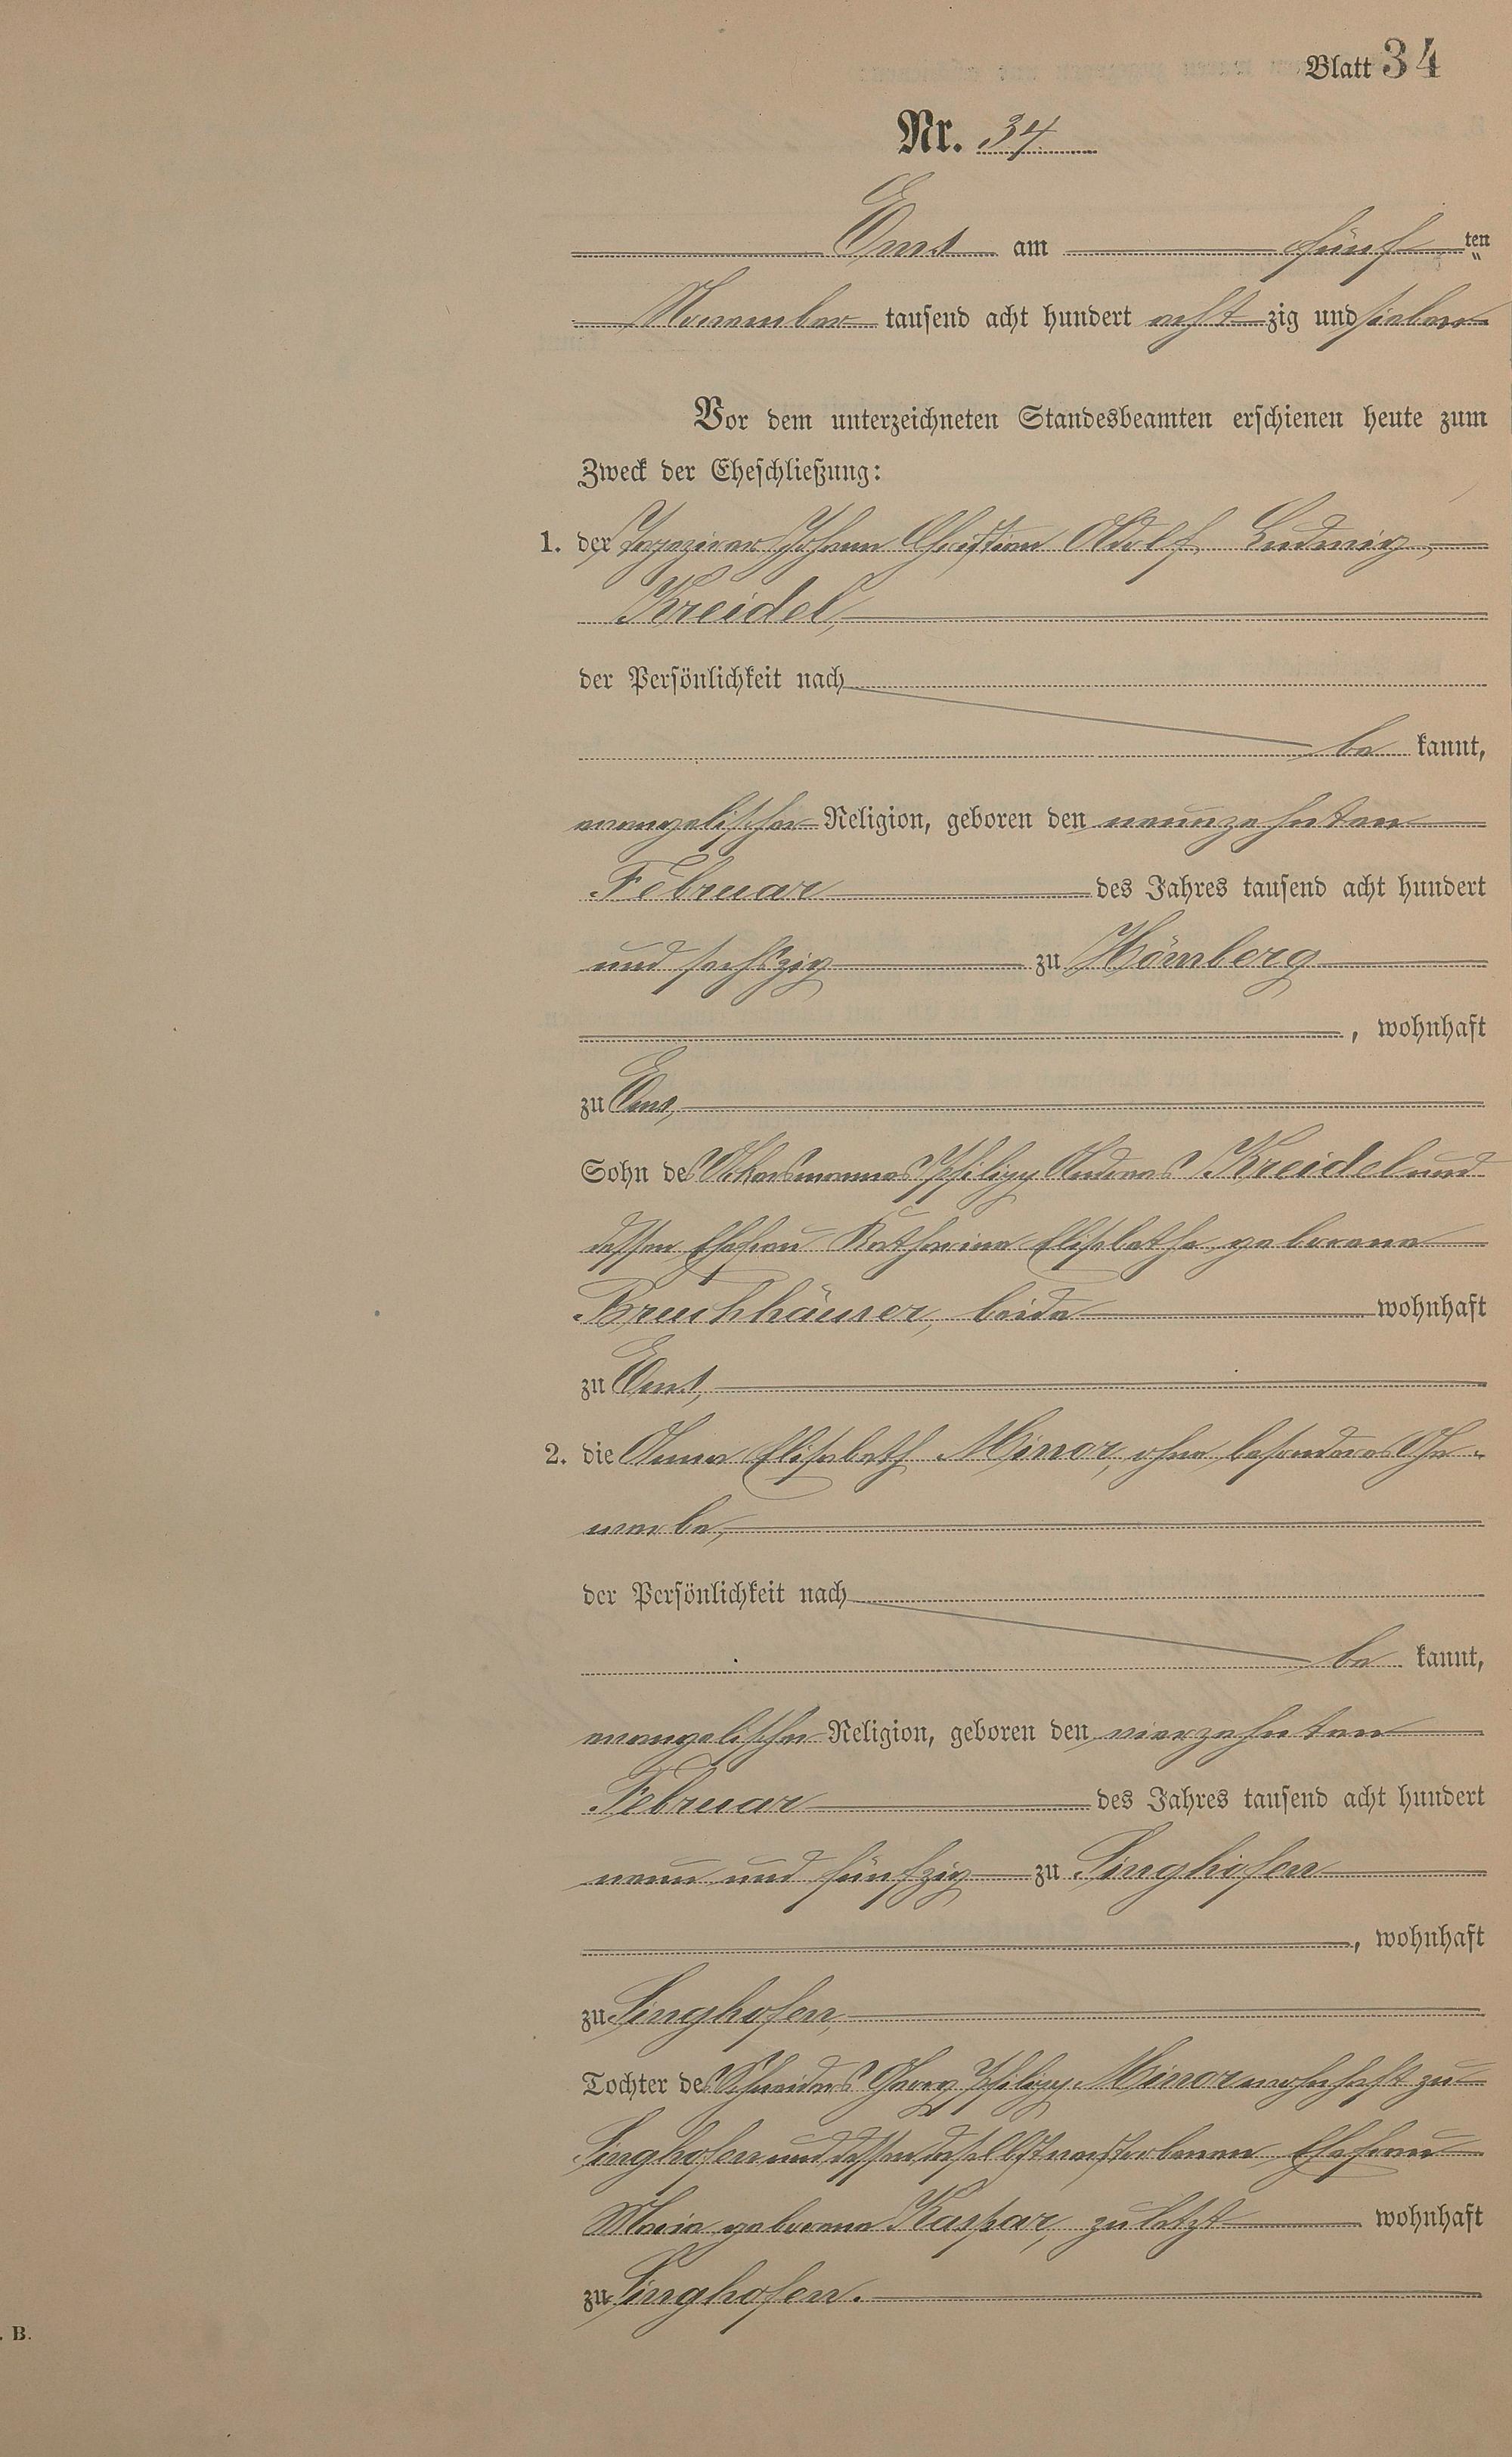 Blatt 34
Nr. 34
Ems am fünf ten
November tausend acht hundert acht zig und sieben
Vor dem unterzeichneten Standesbeamten erschienen heute zum
Zweck der Eheschließung:
1. der Tapezirer Johann Christian Adolf Ludwig
Kreidel,
der Persönlichkeit nach
be kannt,
evangelischer Religion, geboren den neunzehnten
Februar des Jahres tausend acht hundert
und sechszig zu Hömberg
, wohnhaft
zu Ems,
Sohn des Ackersmannes Philipp Andreas Kreidel und
dessen Ehefrau Katharine Elisabethe geborene
Bruchhäuser, beide wohnhaft
zu Ems,
2. die Anna Elisabeth Minor, ohne besonderes Ge-
werbe,
der Persönlichkeit nach
be kannt,
evangelischer Religion, geboren den vierzehnten
Februar des Jahres tausend acht hundert
neun und fünfzig zu Singhofen
, wohnhaft
zu Singhofen,
Tochter des Schneiders Georg Philipp Minor wohnhaft zu
Singhofen und dessen daselbst verstorbenen Ehefrau
Marie geborene Kaspar, zuletzt wohnhaft
zu Singhofen.
. B.